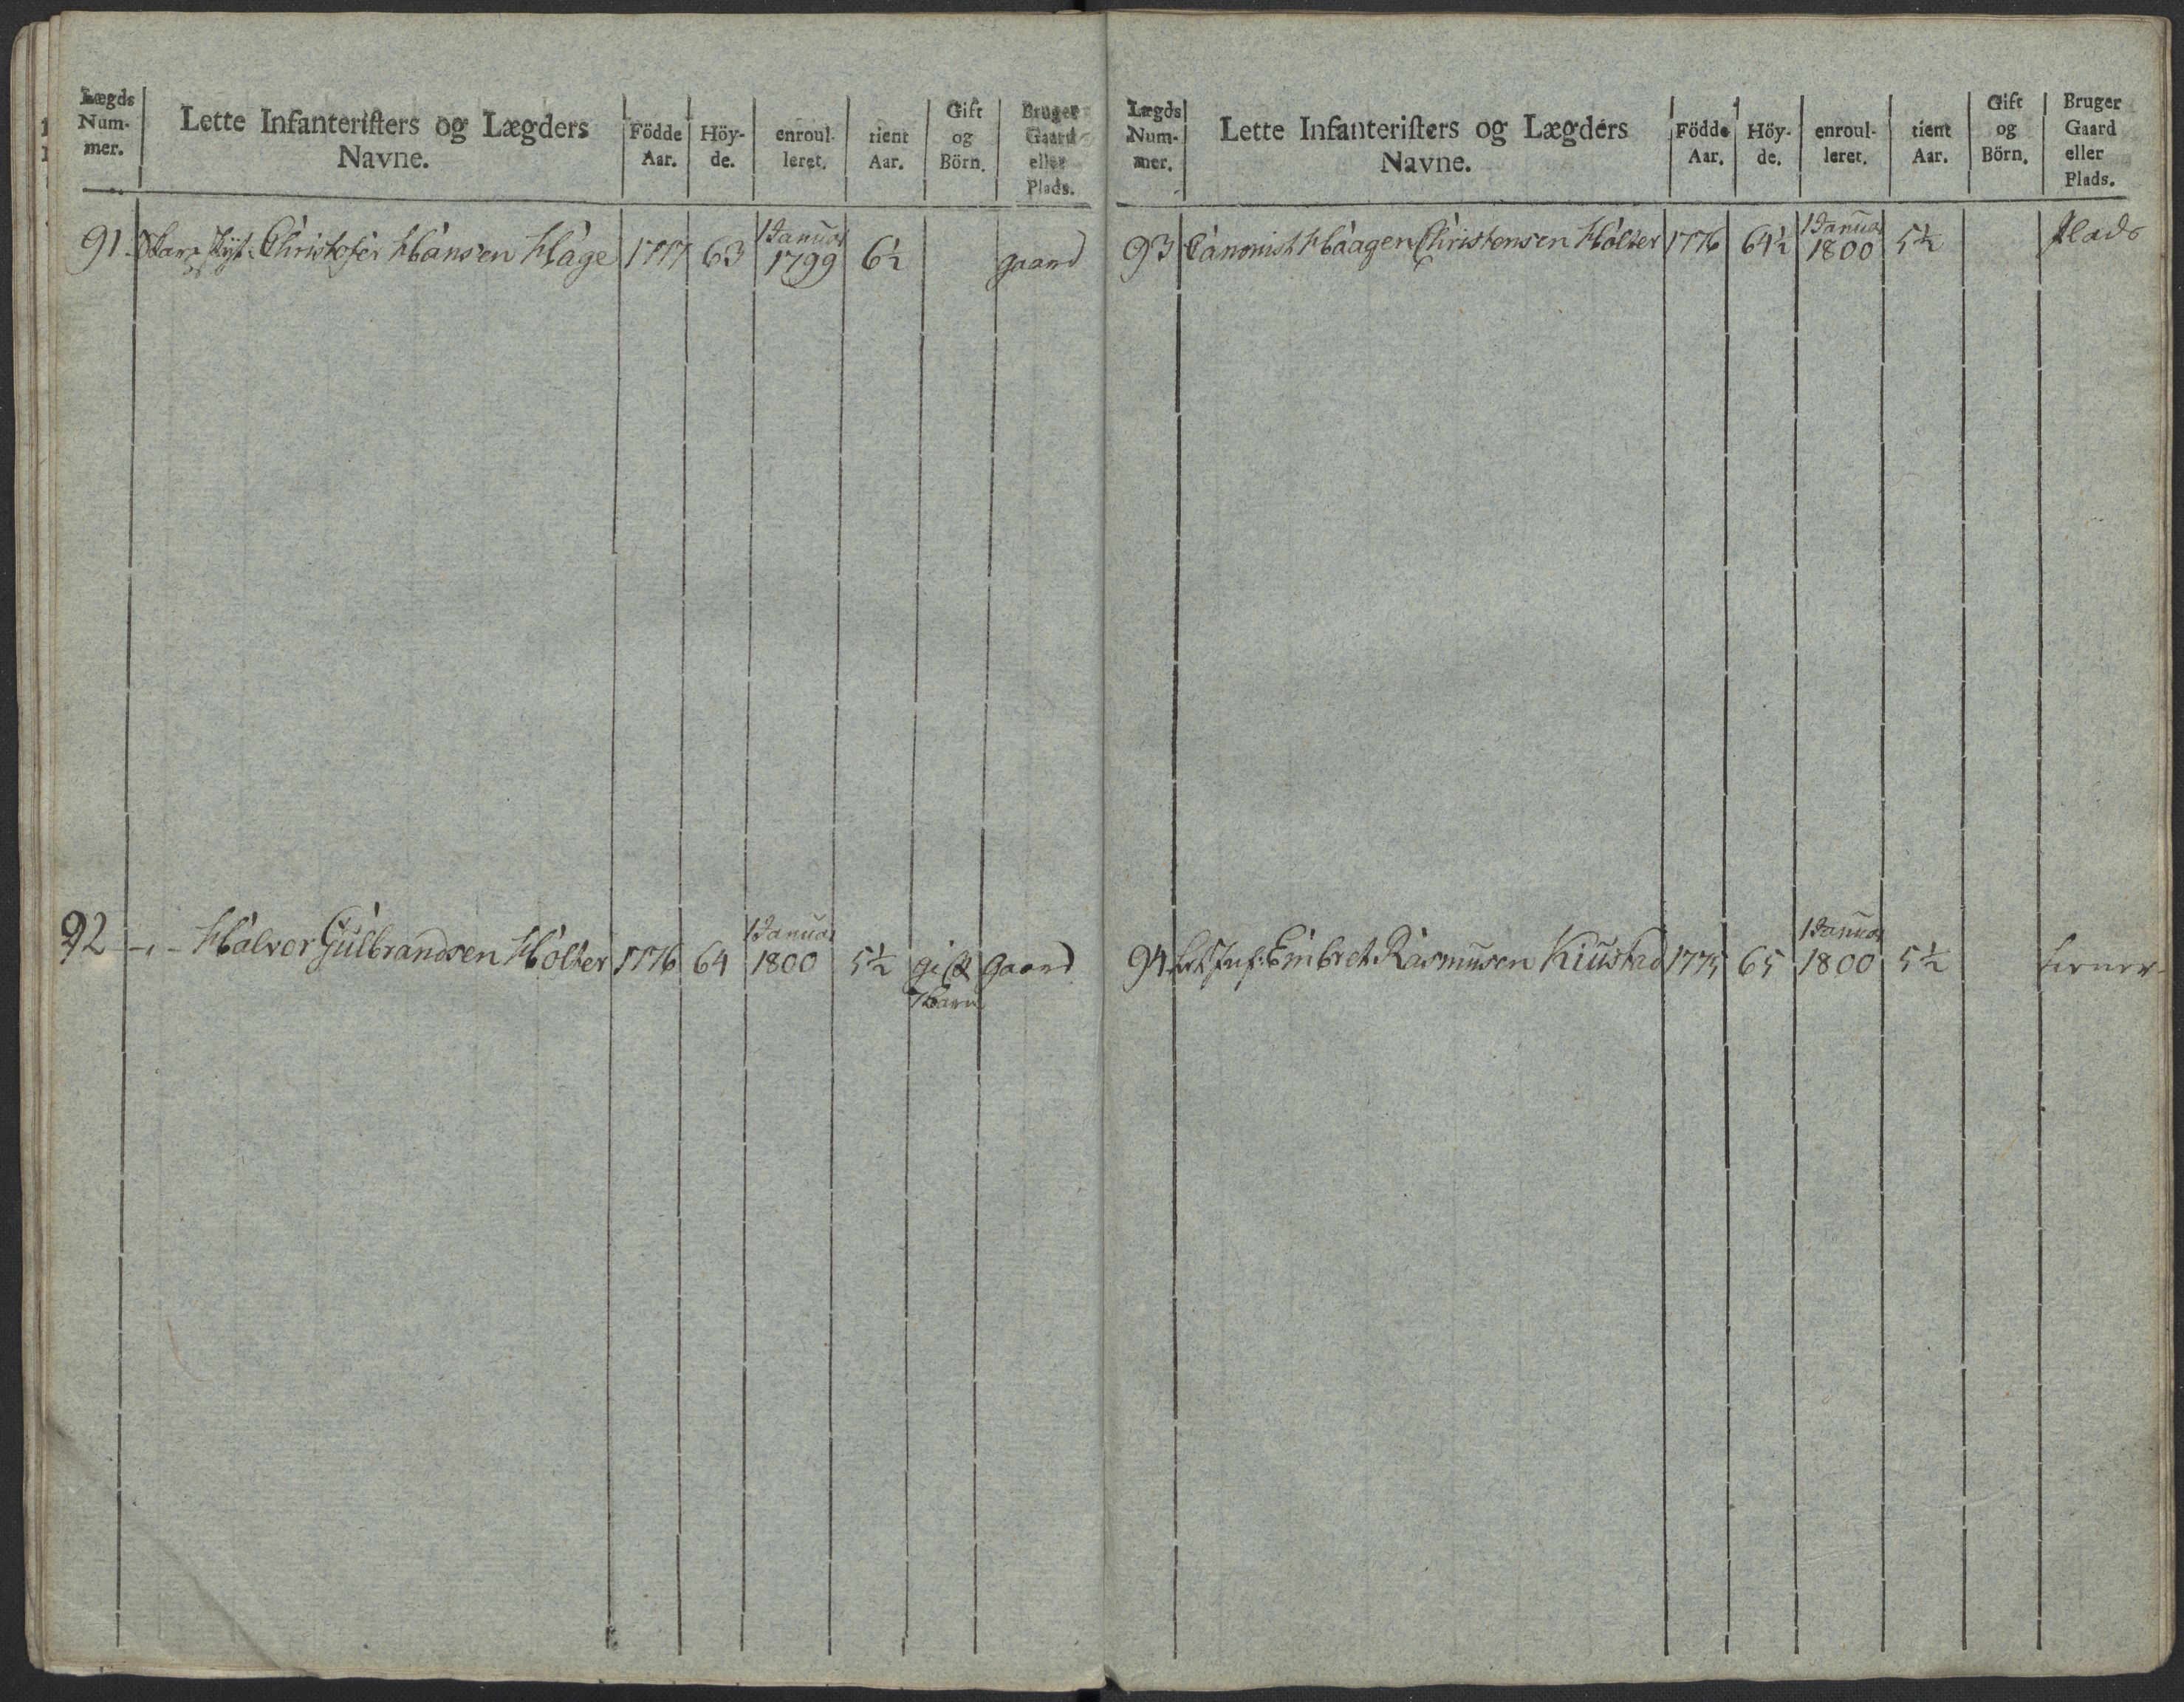 Lægds Nummer. | Lette Infanterister og Lægders Navne. | Födde Aar. | Höyde. | enroulleret. | tient Aar. | Gift og Börn. | Bruger Gaard eller Plads.
91. Skarp Skyt: Christofer Hansen Hage | 1777 | 63 | 1 Januar 1799 | 6½ | | gaard
92 -"- Halvor Gulbrandsen Holter | 1776 | 64 | 1 Januar 1800 | 5½ | gift 1 barn | gaard
Lægds Nummer. | Lette Infanterister og Lægders Navne. | Födde Aar. | Höyde. | enroulleret. | tient Aar. | Gift og Börn. | Bruger Gaard eller Plads.
93 Canonist Haagen Christensen Holter | 1776 | 64½ | 1 Januar 1800 | 5½ | | Plads
94. Inf: Embret Rasmusen Kiustad | 1775 | 65 | 1 Januar 1800 | 5½